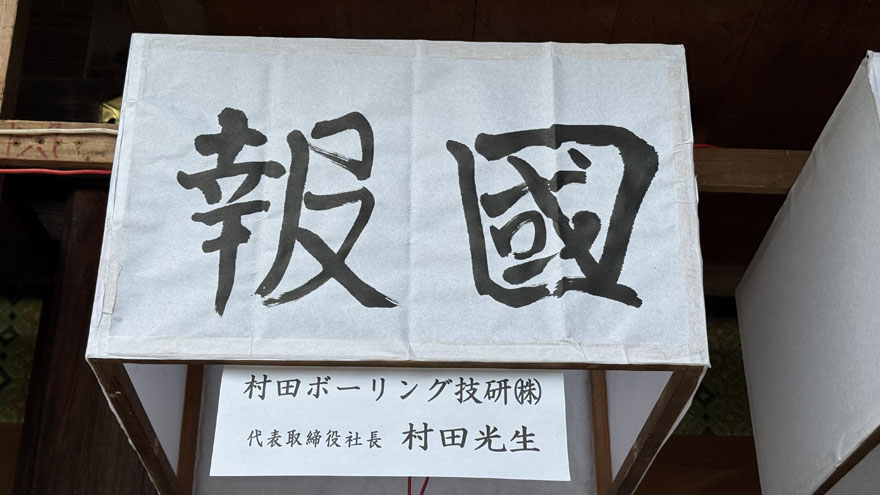 報國
村田ボーリング技研㈱
代表取締役社長 村田光生